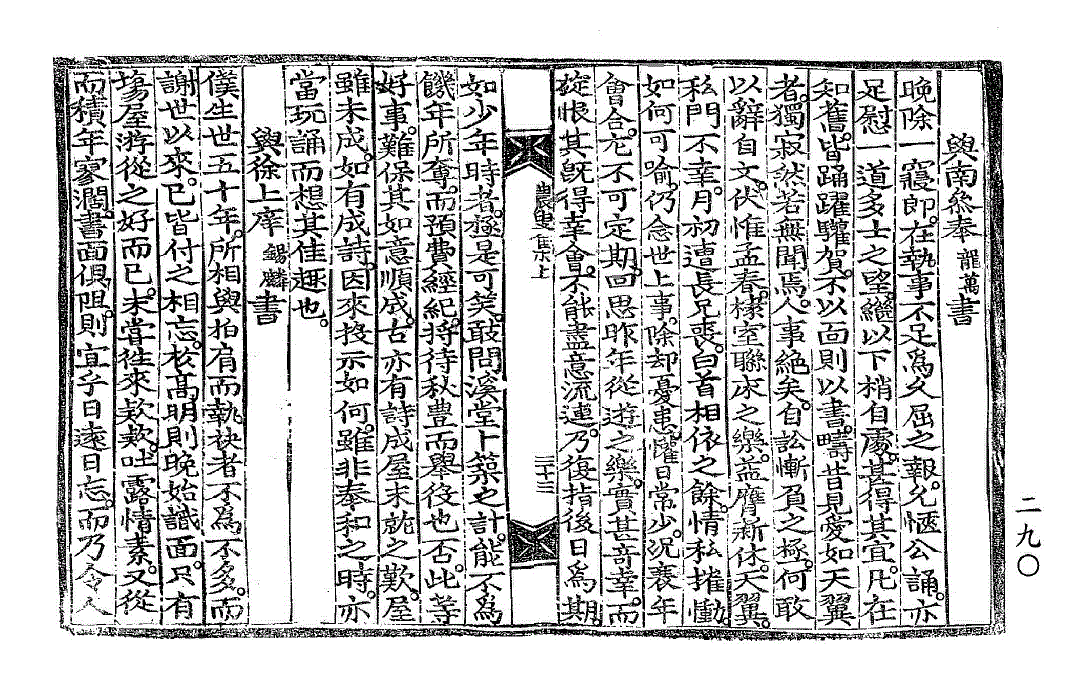 與南參奉 龍萬 書
晩除一寢郎。在執事不足爲久屈之報。允愜公誦。亦
足慰一道多士之望。纔以下稍自處。甚得其宜。凡在
知舊。皆踊躍驩賀。不以面則以書。疇昔見愛如天翼
者。獨寂然若無聞焉。人事絶矣。自訟慚負之極。何敢
以辭自文。伏惟孟春。棣室聯床之樂。益膺新休。天翼。
私門不幸。月初遭長兄喪。白首相依之餘。情私摧慟。
如何可喩。仍念世上事。除却憂患。懽日常少。況衰年
會合。尤不可定期。回思昨年從遊之樂。實甚奇幸。而
旋恨其旣得幸會。不能盡意流連。乃復指後日爲期。
農叟集上
三十三
如少年時者。極是可笑。敢問溪堂卜築之計。能不爲
饑年所奪。而預費經紀。將待秋豊而擧役也否。此等
好事。難保其如意順成。古亦有詩成屋未就之歎。屋
雖未成。如有成詩。因來投示如何。雖非奉和之時。亦
當玩誦而想其佳趣也。
與徐上庠 錫麟 書
僕生世五十年。所相與拍肩而執袂者不爲不多。而
謝世以來。已皆付之相忘。核高明則晩始識面。只有
塲屋游從之好而已。未嘗往來欵欵。吐露情素。又從
而積年家濶。書面俱阻。則宜乎日遠日忘。而乃令人
二九〇